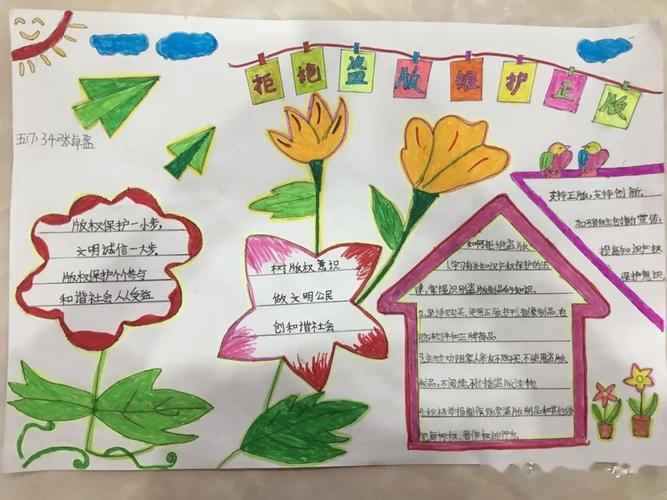 拒绝盗版维护正版
五(7)34张卓盈
版权保护一小步,
文明诚信一大步.
版权保护个个参与
和谐社会人人受益.
树版权意识
做文明公民
创和谐社会
如何拒绝盗版
1.学习有关知识产权保护的法
律,掌握识别盗版制品的知识.
2.坚持购买、使用正版书刊、音像制品,电
脑软件和正牌商品
3.主动劝阻家人亲友不购买、不使用盗版
制品,不阅读、不传播盗版读物
4.积极举报制作贩卖盗版制品和其他侵
犯商标权、著作权的行为.
支持正版,支持创新.
提高知识产权
保护意识